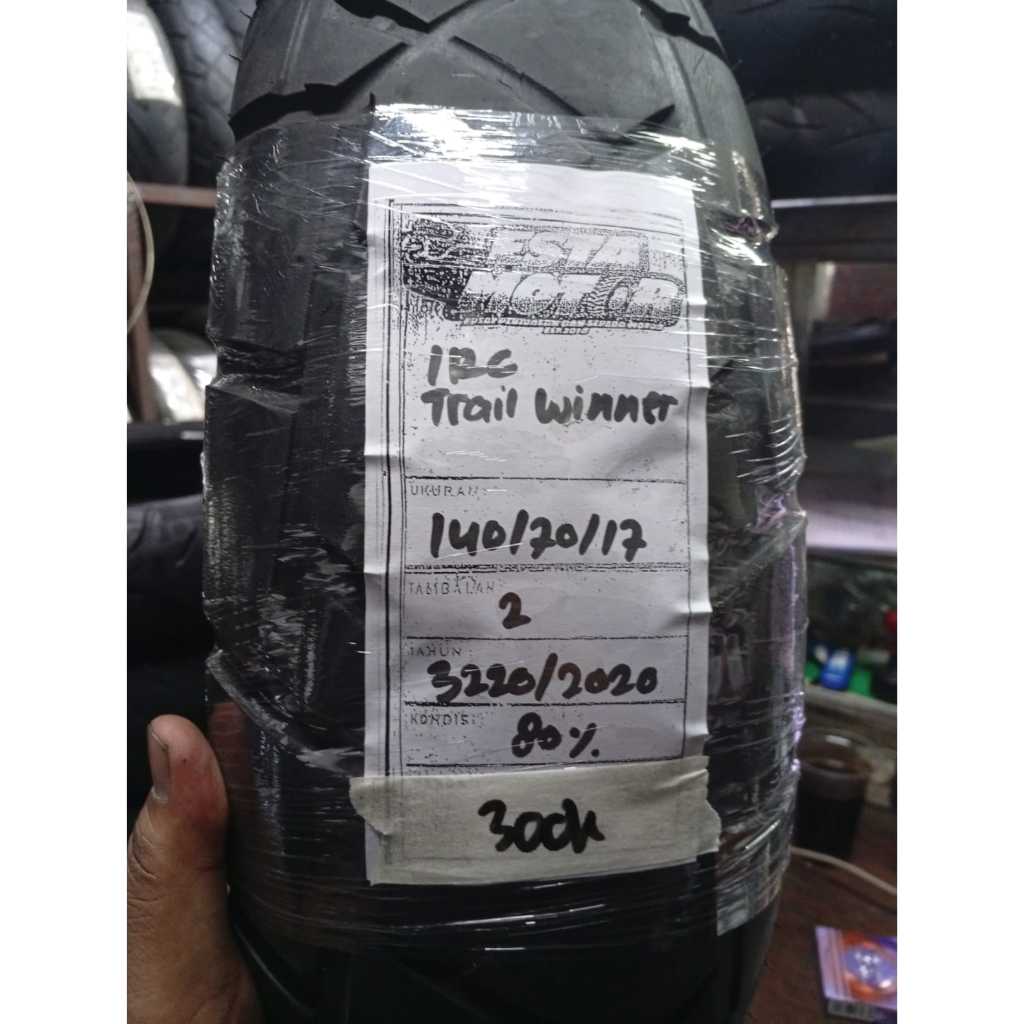 ESTA
MOTOR
IRC
Trail Winner
UKURAN
140/70/17
TAMBALAN
2
TAHUN
3220/2020
KONDISI
80%
300k